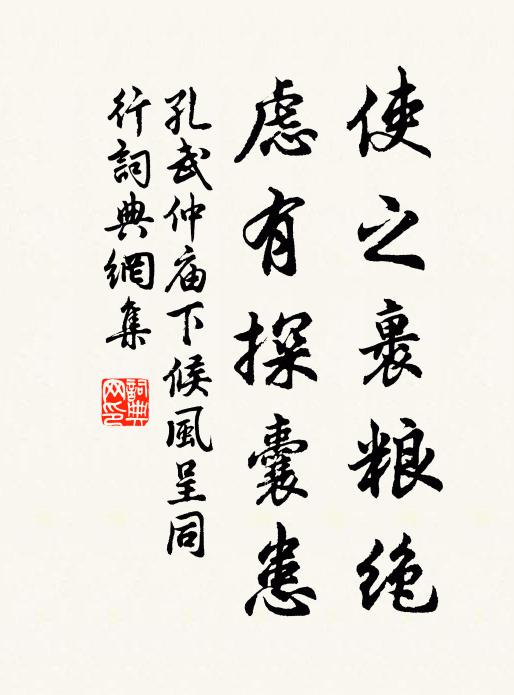 使之裹粮绝
虑有探囊患
孔武仲庙下候风呈同
行詞典網集
詞典网印